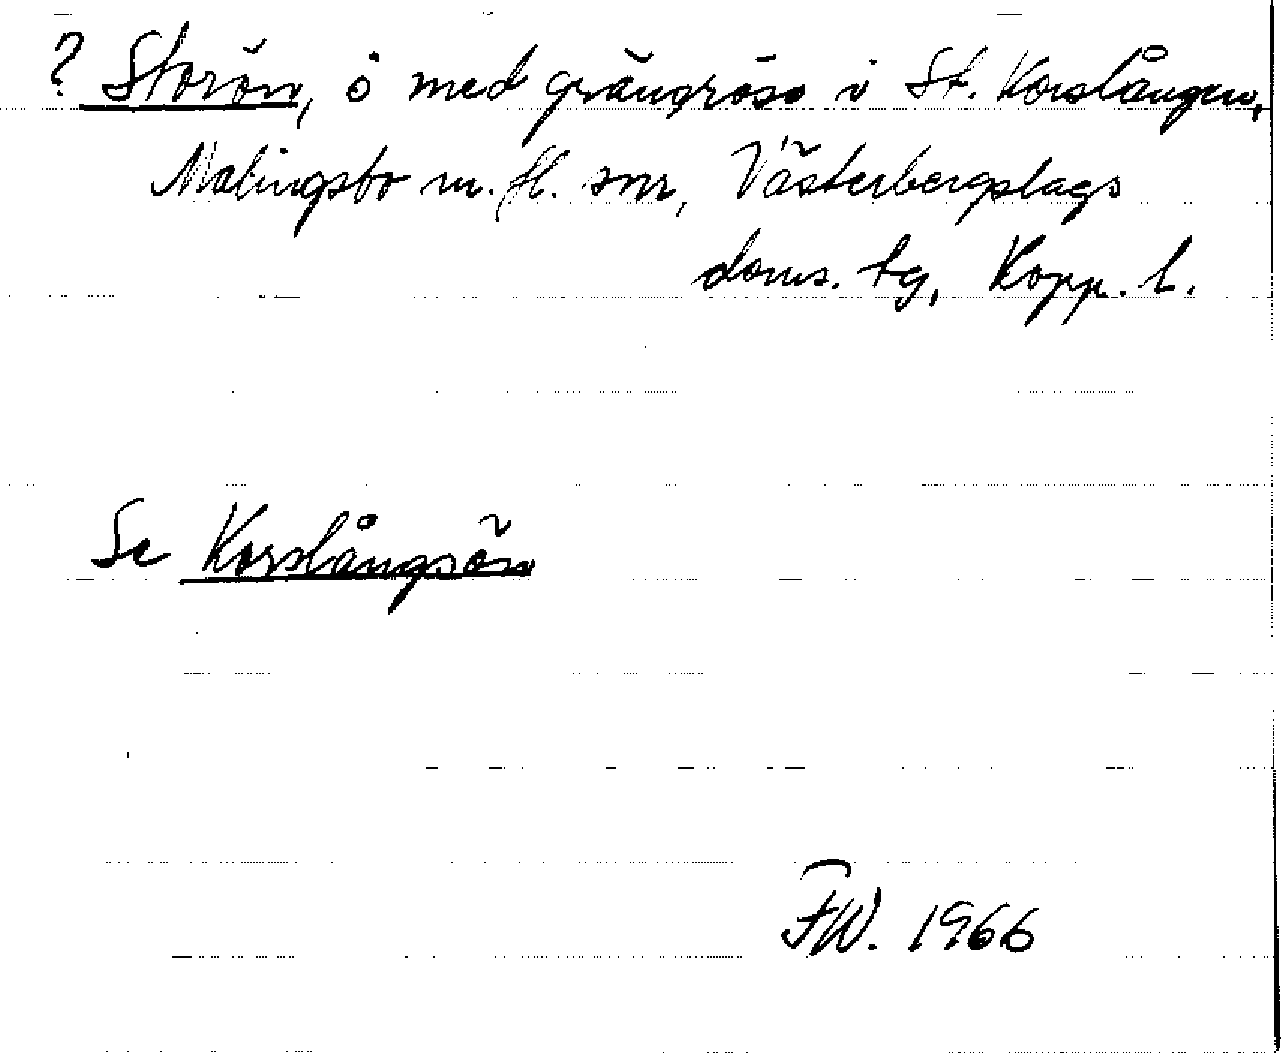 ? Storön, ö med gränsröse i St. Korslången,
Malingsbo m. fl. snr, Västerbergslags
doms. tg, Kopp. l.
Se Korslångsön
FW. 1966